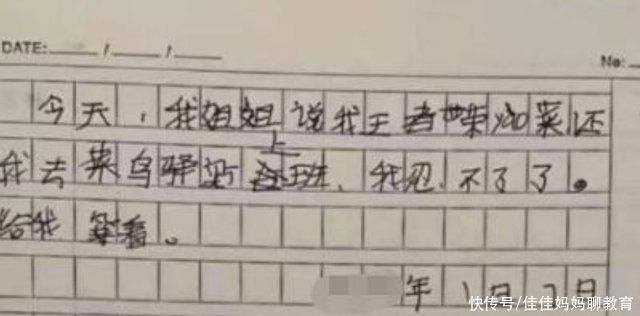 DATE: / /
No:
今天，我姐姐说我王者荣耀菜还
我去菜鸟驿站上班，我忍不了了。
给我等着。
年1月7日
快传号/佳佳妈妈聊教育